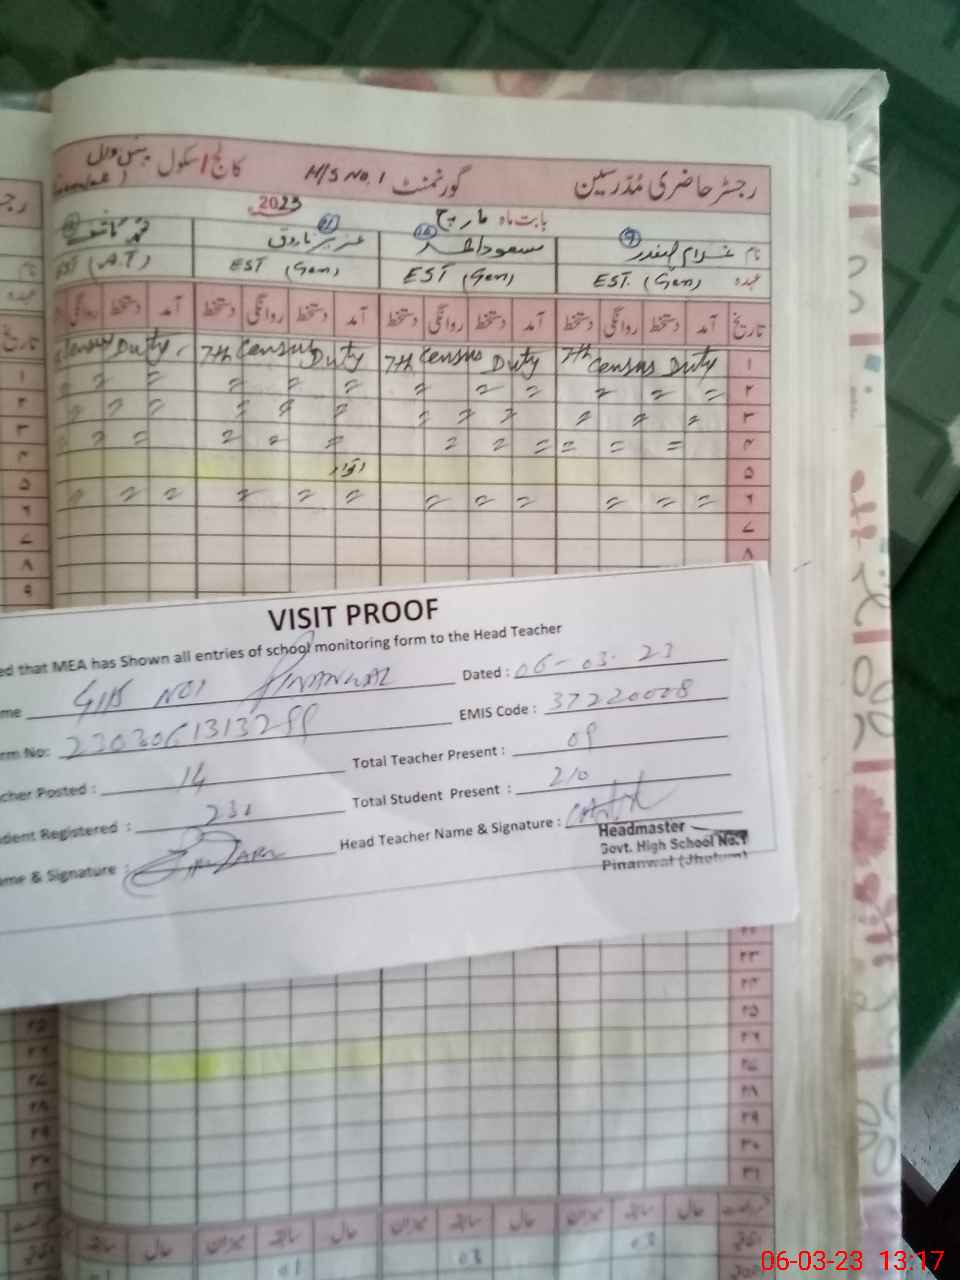 رجسٹر حاضری مُدرسین گورنمنٹ H/S No. 1 کالج / سکول
بابت ماہ مارچ 2023
نام غلام صفدر مسعود احمد عزیز فاروق
عہدہ EST. (Gen) EST (Gen) EST (Gen) EST (A.T)
تاریخ آمد دستخط روانگی دستخط آمد دستخط روانگی دستخط آمد دستخط روانگی دستخط آمد دستخط روانگی
۱ 7th Census Duty 7th Census Duty 7th Census Duty Census Duty
۲ 〃 〃 〃 〃 〃 〃 〃 〃 〃 〃 〃
۳ 〃 〃 〃 〃 〃 〃 〃 〃 〃 〃 〃
۴ 〃 〃 〃 〃 〃 〃 〃 〃 〃 〃 〃
۵ اتوار
۶ 〃 〃 〃 〃 〃 〃 〃 〃 〃 〃 〃
۷
۸
VISIT PROOF
that MEA has Shown all entries of school monitoring form to the Head Teacher
GHS NO1 PINANWAL Dated : 06-03-23
No: EMIS Code : 37220008
Posted : 14 Total Teacher Present : 09
Registered : 231 Total Student Present : 210
& Signature : Head Teacher Name & Signature :
Headmaster
Govt. High School No.1
Pinanwal (Jhelum)
۲۳
۲۴
۲۵
۲۶
۲۷
۲۸
۲۹
۳۰
۳۱
حال سابقہ میزان حال سابقہ میزان حال سابقہ
03 03 01
06-03-23 13:17